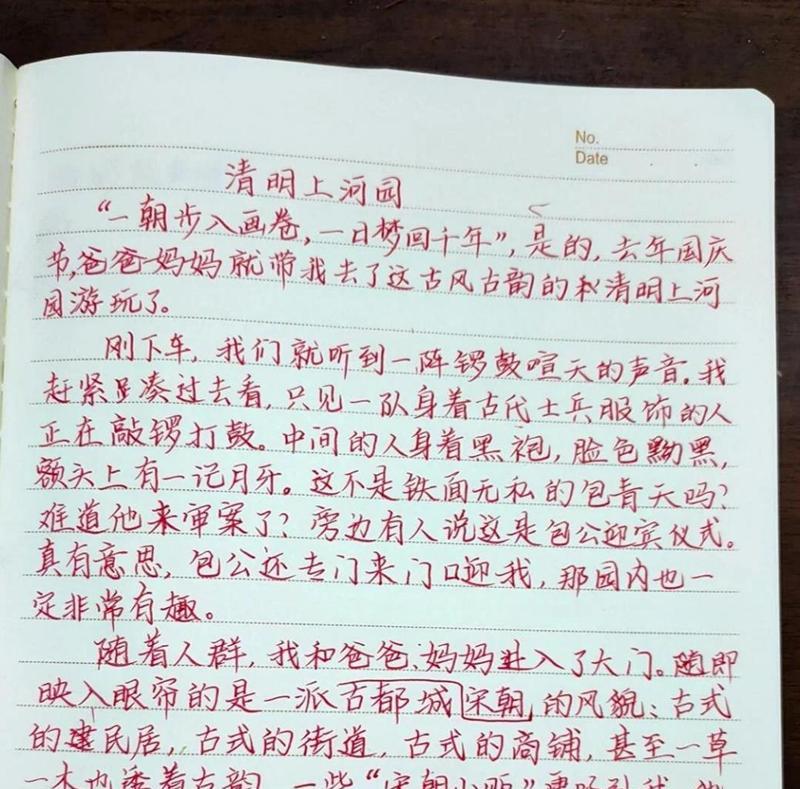 No.
Date
清明上河园
“一朝步入画卷,一日梦回千年”,是的,去年国庆
节,爸爸妈妈就带我去了这古风古韵的清明上河
园游玩了。
刚下车,我们就听到一阵锣鼓喧天的声音。我
赶紧凑过去看,只见一队身着古代士兵服饰的人
正在敲锣打鼓。中间的人身着黑袍,脸色黝黑,
额头上有一记月牙。这不是铁面无私的包青天吗?
难道他来审案了?旁边有人说这是包公迎宾仪式。
真有意思,包公还专门来门口迎我,那园内也一
定非常有趣。
随着人群,我和爸爸、妈妈进入了大门。随即
映入眼帘的是一派古都城宋朝的风貌:古式
的民居,古式的街道,古式的商铺,甚至一草
一木也透着古韵。一些“宋朝小贩”